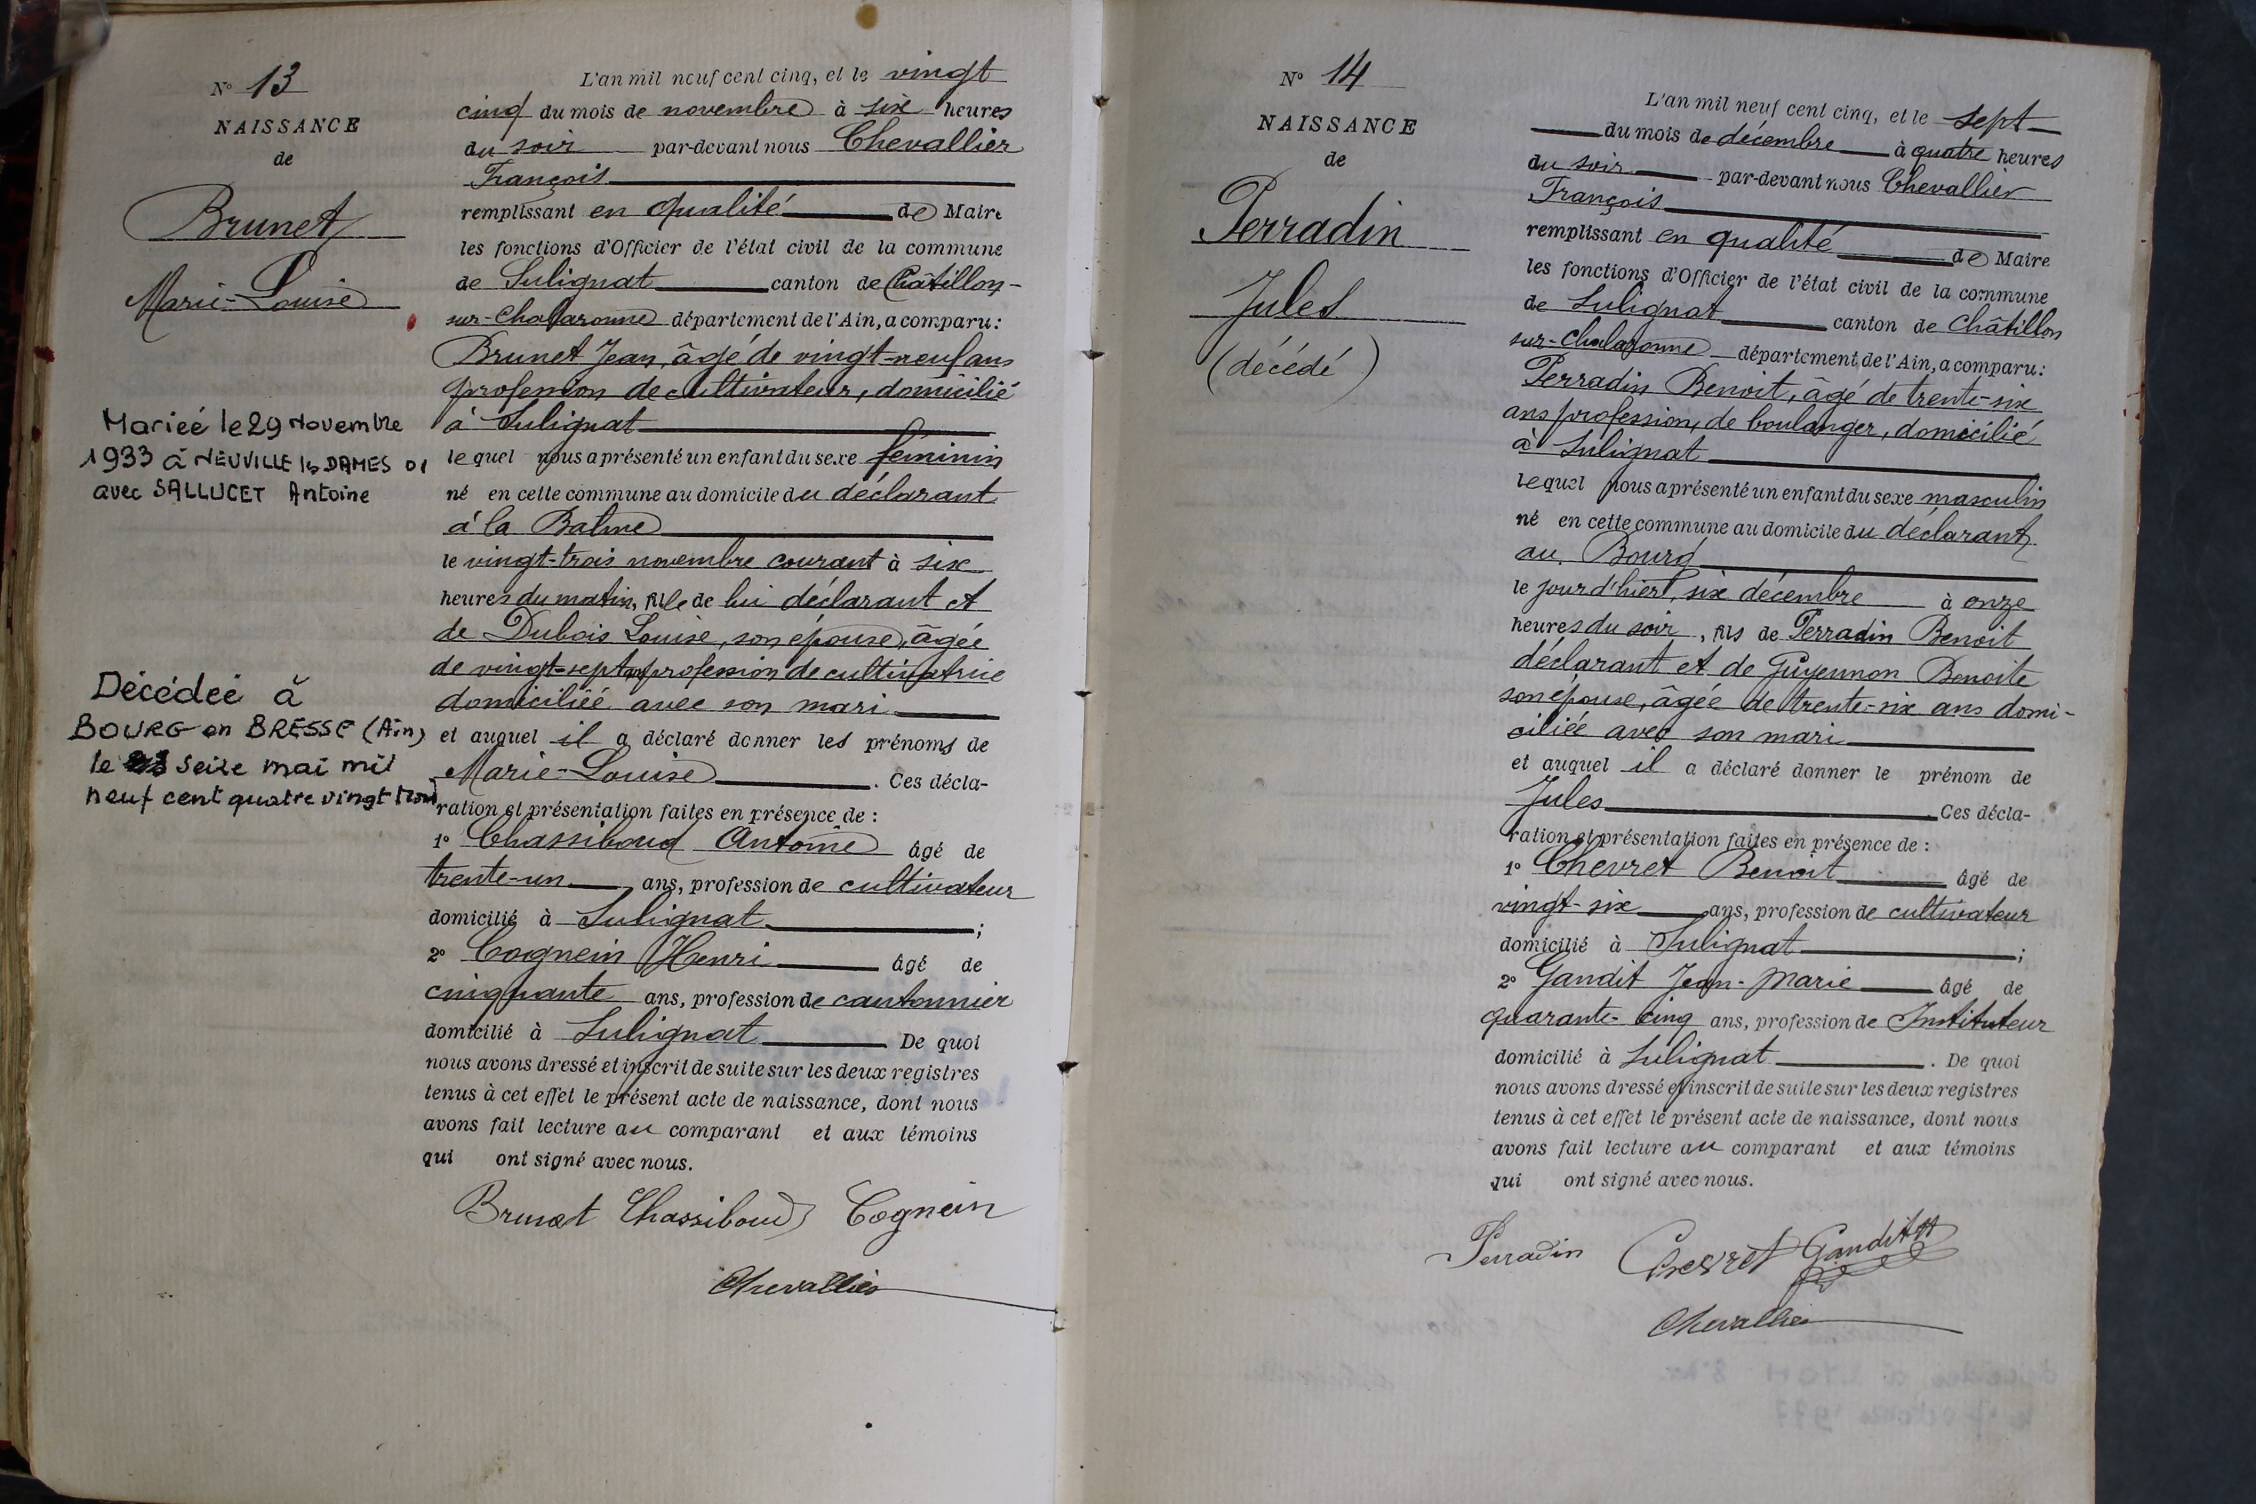 N° 13
NAISSANCE
de
Brunet
Marie-Louise
Mariée le 29 Novembre
1933 à NEUVILLE les DAMES 01
avec SALLUCET Antoine
Décédée à
BOURG en BRESSE (Ain)
le seize mai mil
neuf cent quatre vingt trois
L'an mil neuf cent cinq, et le vingt
cinq du mois de novembre à six heures
du soir par-devant nous Chevallier
François
remplissant en qualité de Maire
les fonctions d'Officier de l'état civil de la commune
de Sulignat canton de Châtillon-
sur-Chalaronne département de l'Ain, a comparu:
Brunet Jean, âgé de vingt-neuf ans
profession de cultivateur, domicilié
à Sulignat
lequel nous a présenté un enfant du sexe féminin
né en cette commune au domicile du déclarant
à la Balme
le vingt-trois novembre courant à six
heures du matin, fille de lui déclarant et
de Dubois Louise, son épouse, âgée
de vingt-sept ans profession de cultivatrice
domiciliée avec son mari
et auquel il a déclaré donner les prénoms de
Marie-Louise. Ces décla-
ration et présentation faites en présence de :
1° Chassiboud Antoine âgé de
trente-un ans, profession de cultivateur
domicilié à Sulignat ;
2° Cognein Henri âgé de
cinquante ans, profession de cantonnier
domicilié à Sulignat De quoi
nous avons dressé et inscrit de suite sur les deux registres
tenus à cet effet le présent acte de naissance, dont nous
avons fait lecture au comparant et aux témoins
qui ont signé avec nous.
Brunet Chassiboud Cognein
Chevallier
N° 14
NAISSANCE
de
Perradin
Jules
(décédé)
L'an mil neuf cent cinq, et le sept
du mois de décembre à quatre heures
du soir par-devant nous Chevallier
François
remplissant en qualité de Maire
les fonctions d'Officier de l'état civil de la commune
de Sulignat canton de Châtillon
sur-Chalaronne département de l'Ain, a comparu:
Perradin Benoit, âgé de trente-six
ans profession, de boulanger, domicilié
à Sulignat
lequel nous a présenté un enfant du sexe masculin
né en cette commune au domicile du déclarant
au Bourg
le jour d'hier, six décembre à onze
heures du soir, fils de Perradin Benoit
déclarant et de Guyennon Benoite
son épouse, âgée de trente-six ans domi-
ciliée avec son mari
et auquel il a déclaré donner le prénom de
Jules. Ces décla-
ration et présentation faites en présence de :
1° Chevret Benoit âgé de
vingt-six ans, profession de cultivateur
domicilié à Sulignat ;
2° Gandit Jean-Marie âgé de
quarante-cinq ans, profession de Instituteur
domicilié à Sulignat. De quoi
nous avons dressé et inscrit de suite sur les deux registres
tenus à cet effet le présent acte de naissance, dont nous
avons fait lecture au comparant et aux témoins
qui ont signé avec nous.
Perradin Chevret Gandit
Chevallier